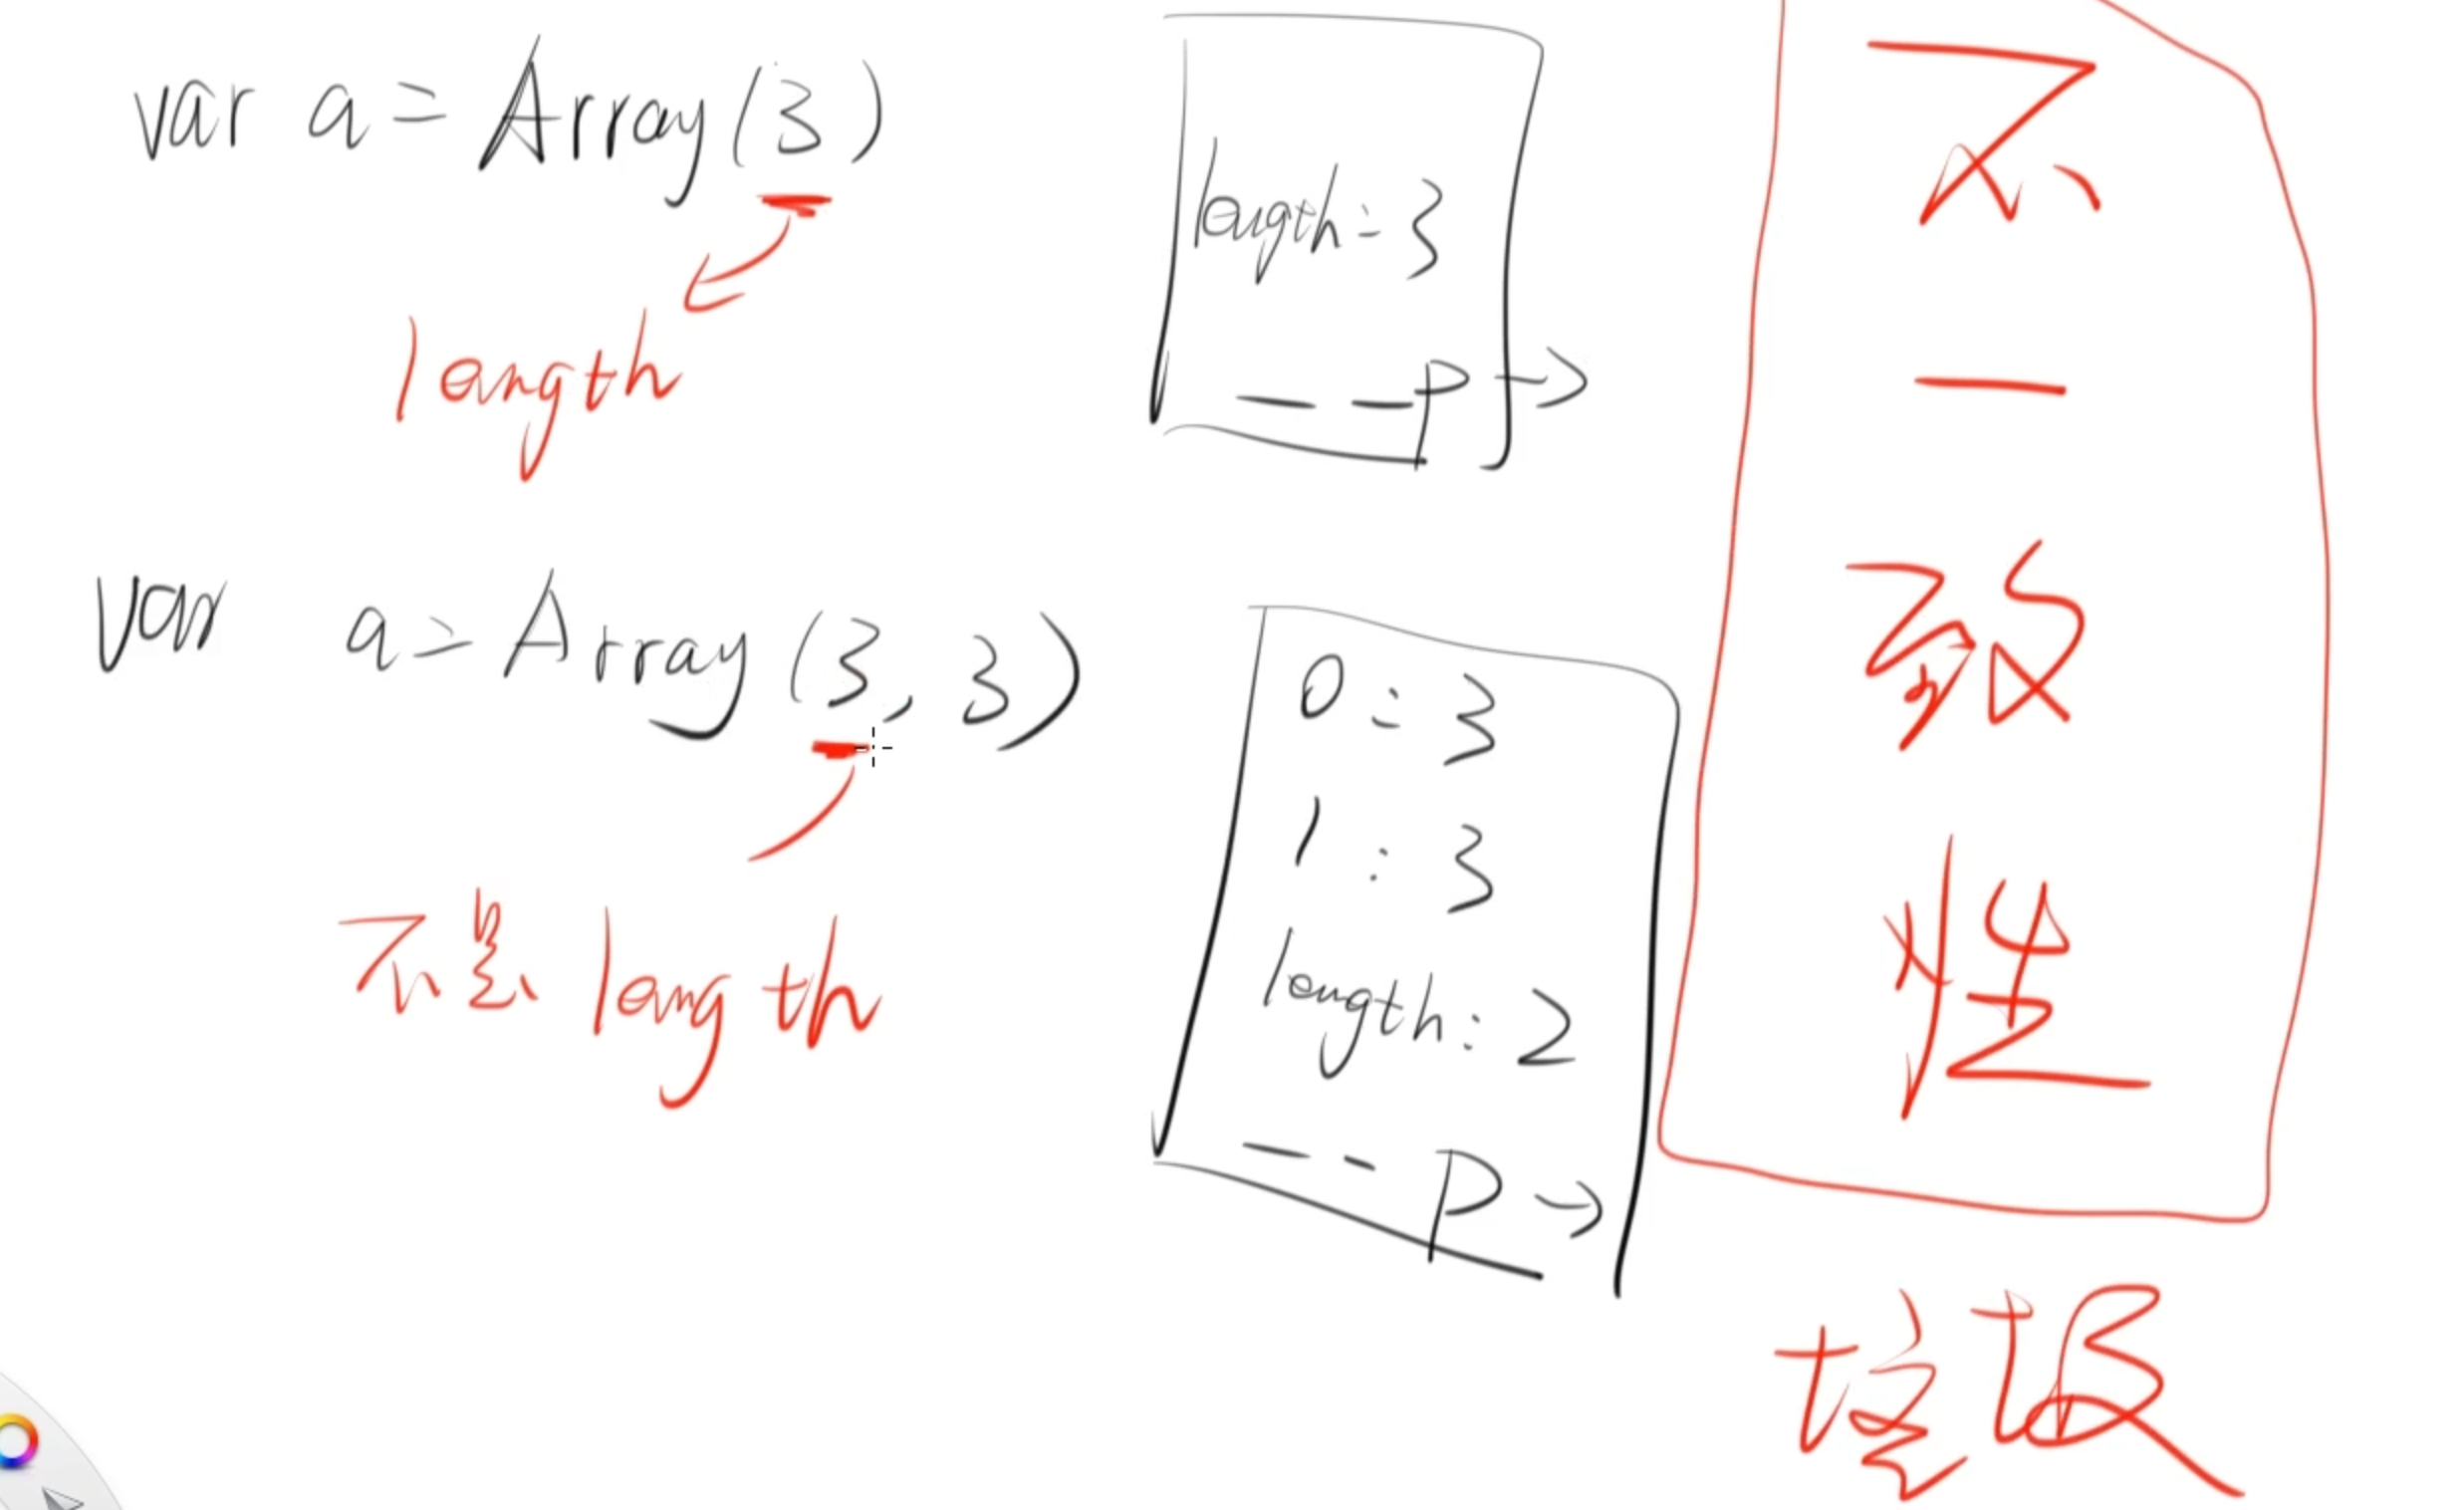 var a = Array(3)
length
length: 3
__p →
var a = Array(3, 3)
不是 length
0: 3
1: 3
length: 2
__p →
不
一
致
性
垃圾